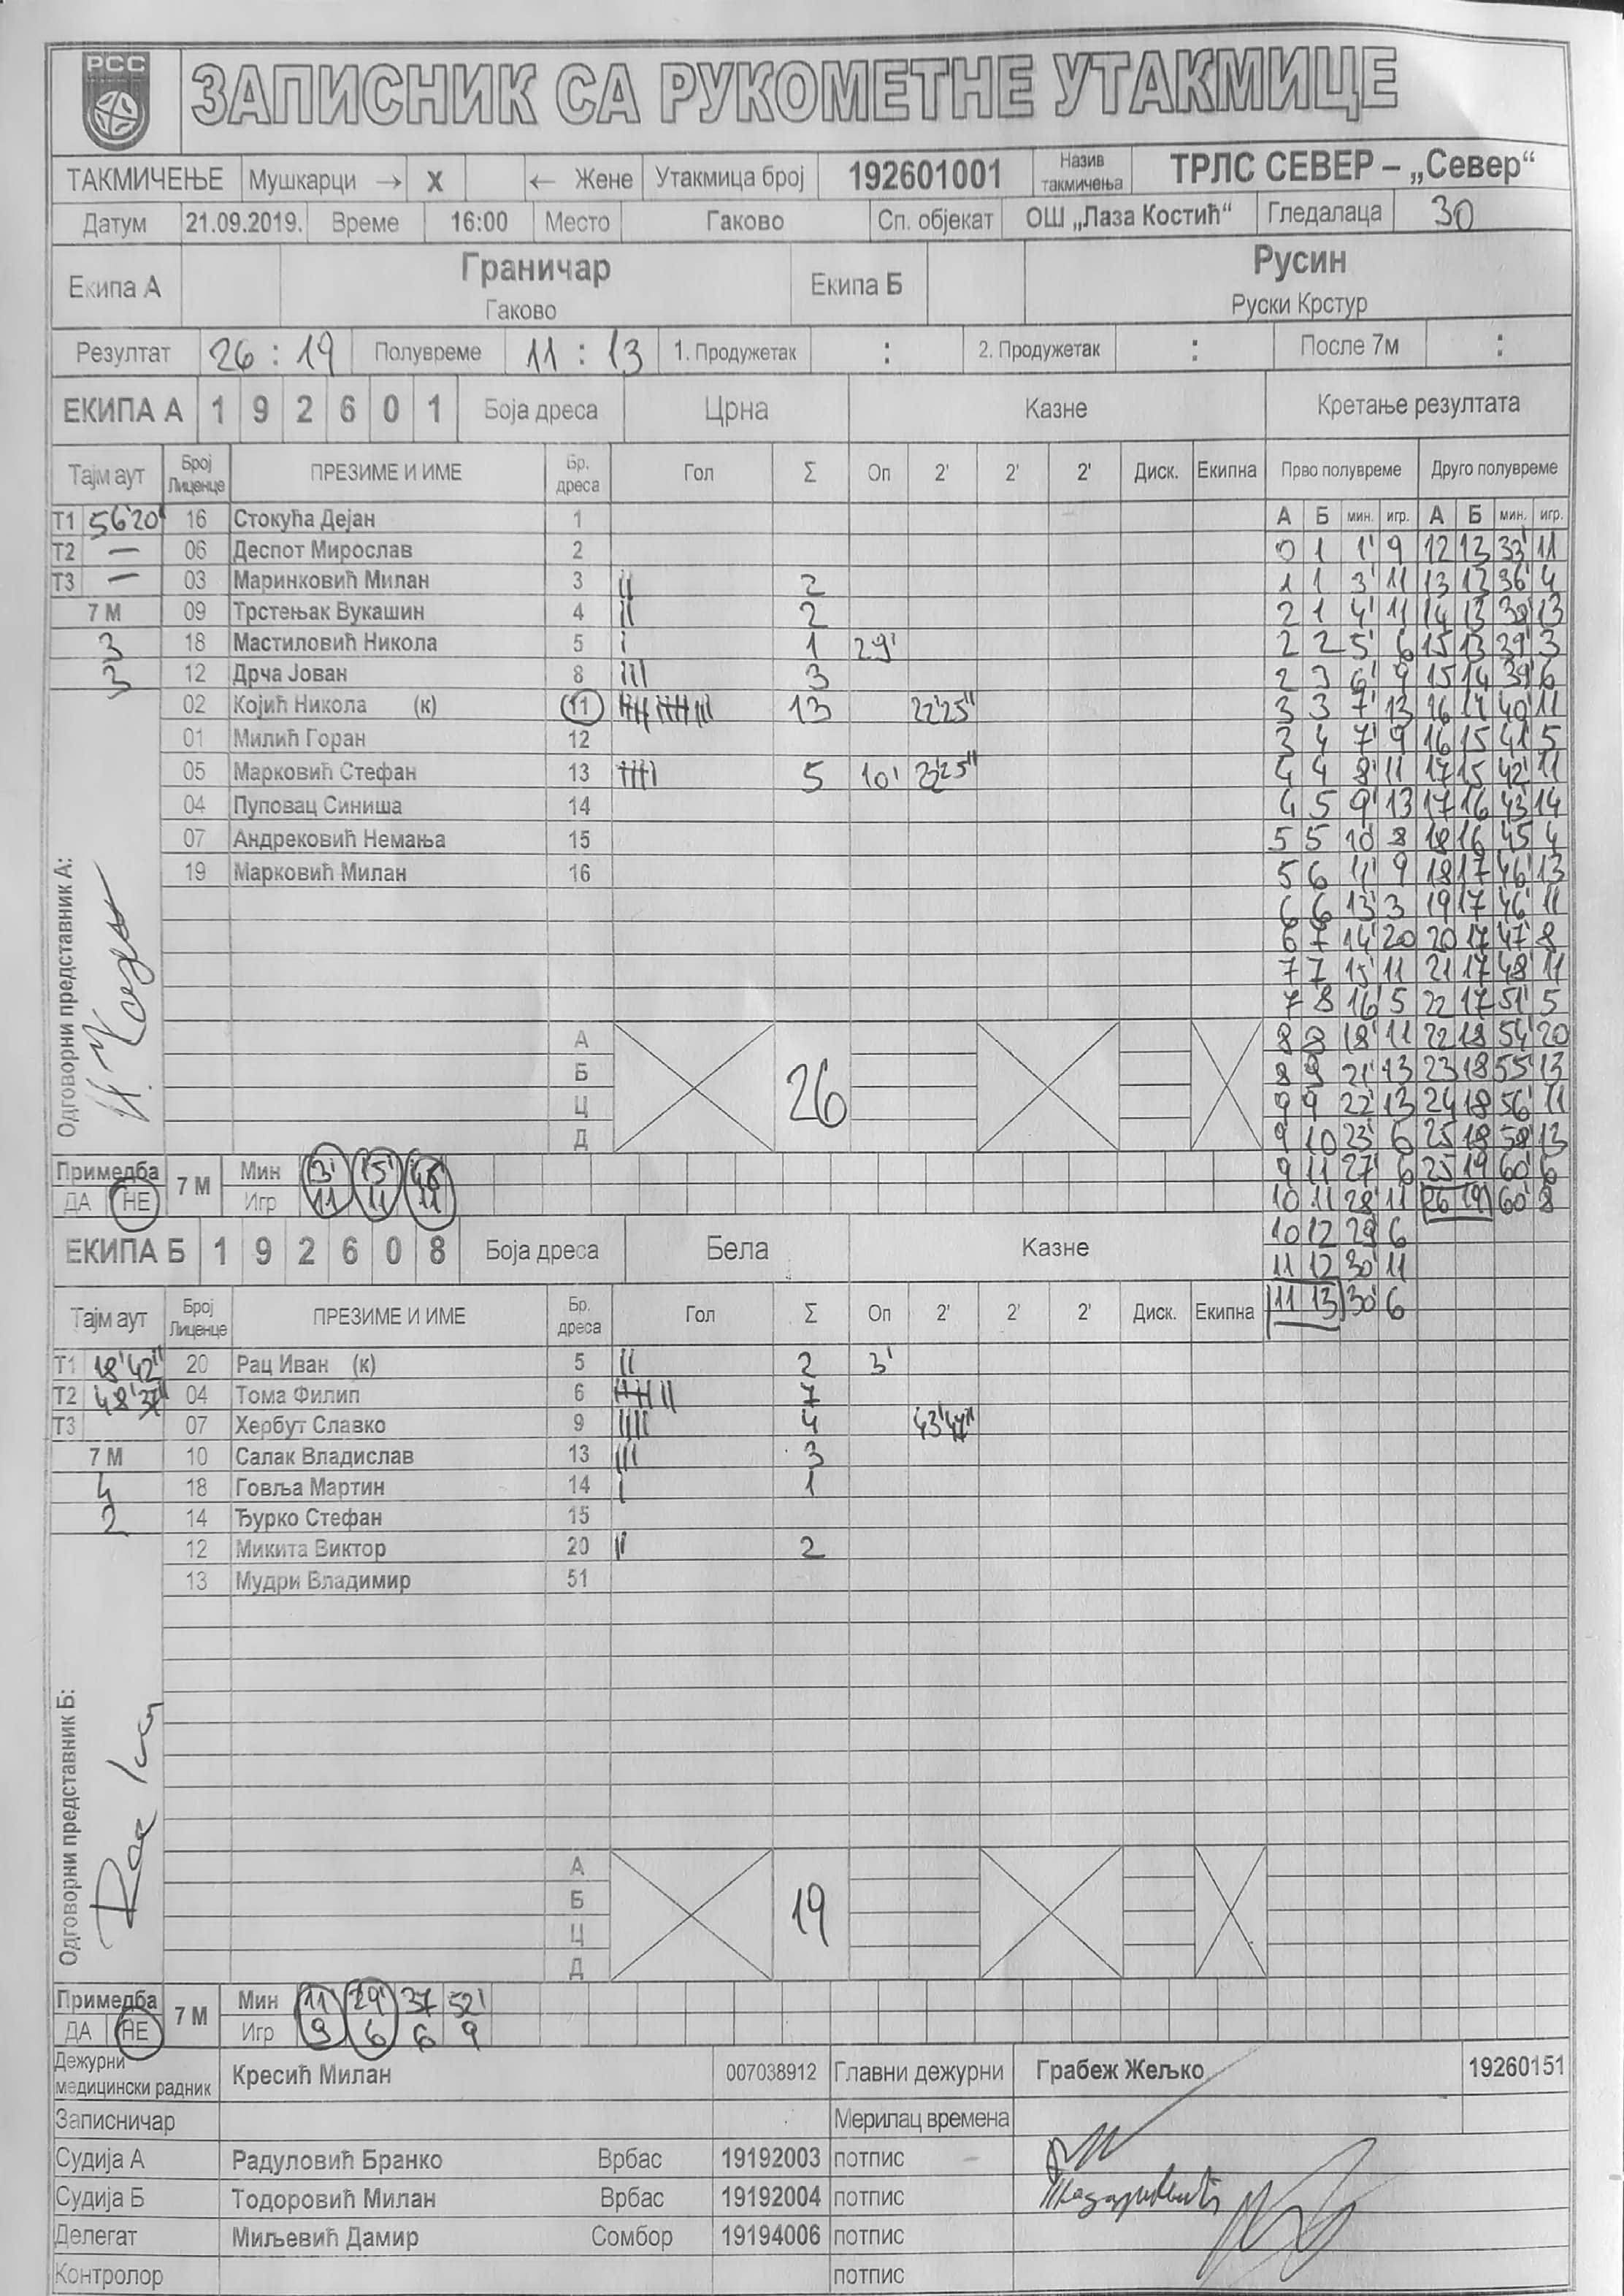 РСС
ЗАПИСНИК СА РУКОМЕТНЕ УТАКМИЦЕ
ТАКМИЧЕЊЕ Мушкарци → X ← Жене Утакмица број 192601001 Назив такмичења ТРЛС СЕВЕР – „Север“
Датум 21.09.2019. Време 16:00 Место Гаково Сп. објекат ОШ „Лаза Костић“ Гледалаца 30
Екипа А Граничар Екипа Б Русин
Гаково Руски Крстур
Резултат 26 : 19 Полувреме 11 : 13 1. Продужетак : 2. Продужетак : После 7м :
ЕКИПА А 1 9 2 6 0 1 Боја дреса Црна Казне Кретање резултата
Тајм аут Број Лиценце ПРЕЗИМЕ И ИМЕ Бр. дреса Гол Σ Оп 2' 2' 2' Диск. Екипна Прво полувреме Друго полувреме
Т1 56'20" 16 Стокућа Дејан 1 А Б мин. игр. А Б мин. игр.
Т2 – 06 Деспот Мирослав 2 0 1 1' 9 12 13 33' 11
Т3 – 03 Маринковић Милан 3 || 2 1 1 3' 11 13 13 36' 4
7 М 09 Трстењак Вукашин 4 || 2 2 1 4' 11 14 13 38' 13
3 18 Мастиловић Никола 5 | 1 29' 2 2 5' 6 15 13 39' 3
3 12 Дрча Јован 8 ||| 3 2 3 6' 9 15 14 39' 6
02 Којић Никола (к) 11 13 22'25" 3 3 7' 13 16 14 40' 11
01 Милић Горан 12 3 4 7' 9 16 15 41' 5
05 Марковић Стефан 13 5 10' 4 4 8' 11 17 15 42' 11
04 Пуповац Синиша 14 4 5 9' 13 17 16 43' 14
07 Андрековић Немања 15 5 5 10' 8 18 16 45' 4
19 Марковић Милан 16 5 6 11' 9 18 17 46' 13
6 6 13' 3 19 17 46' 11
6 7 14' 20 20 17 47' 8
7 7 15' 11 21 17 48' 11
7 8 16' 5 22 17 51' 5
А 8 8 18' 11 22 18 54' 20
Б 26 8 9 21' 13 23 18 55' 13
Ц 9 9 22' 13 24 18 56' 11
Д 9 10 23' 6 25 18 58' 13
Одговорни представник А:
Примедба 7 М Мин 3' 15' 48' 9 11 27' 6 25 19 60' 6
ДА НЕ Игр 11 11 11 10 11 28' 11 26 19 60' 8
10 12 29' 6
ЕКИПА Б 1 9 2 6 0 8 Боја дреса Бела Казне 11 12 30' 11
Тајм аут Број Лиценце ПРЕЗИМЕ И ИМЕ Бр. дреса Гол Σ Оп 2' 2' 2' Диск. Екипна 11 13 30' 6
Т1 18'42" 20 Рац Иван (к) 5 || 2 3'
Т2 48'37" 04 Тома Филип 6 7
Т3 07 Хербут Славко 9 |||| 4 43'47"
7 М 10 Салак Владислав 13 ||| 3
4 18 Говља Мартин 14 | 1
2 14 Ђурко Стефан 15
12 Микита Виктор 20 || 2
13 Мудри Владимир 51
Одговорни представник Б:
А
Б 19
Ц
Д
Примедба 7 М Мин 11' 29' 37 52'
ДА НЕ Игр 9 6 6 9
Дежурни медицински радник Кресић Милан 007038912 Главни дежурни Грабеж Жељко 19260151
Записничар Мерилац времена
Судија А Радуловић Бранко Врбас 19192003 потпис
Судија Б Тодоровић Милан Врбас 19192004 потпис
Делегат Миљевић Дамир Сомбор 19194006 потпис
Контролор потпис